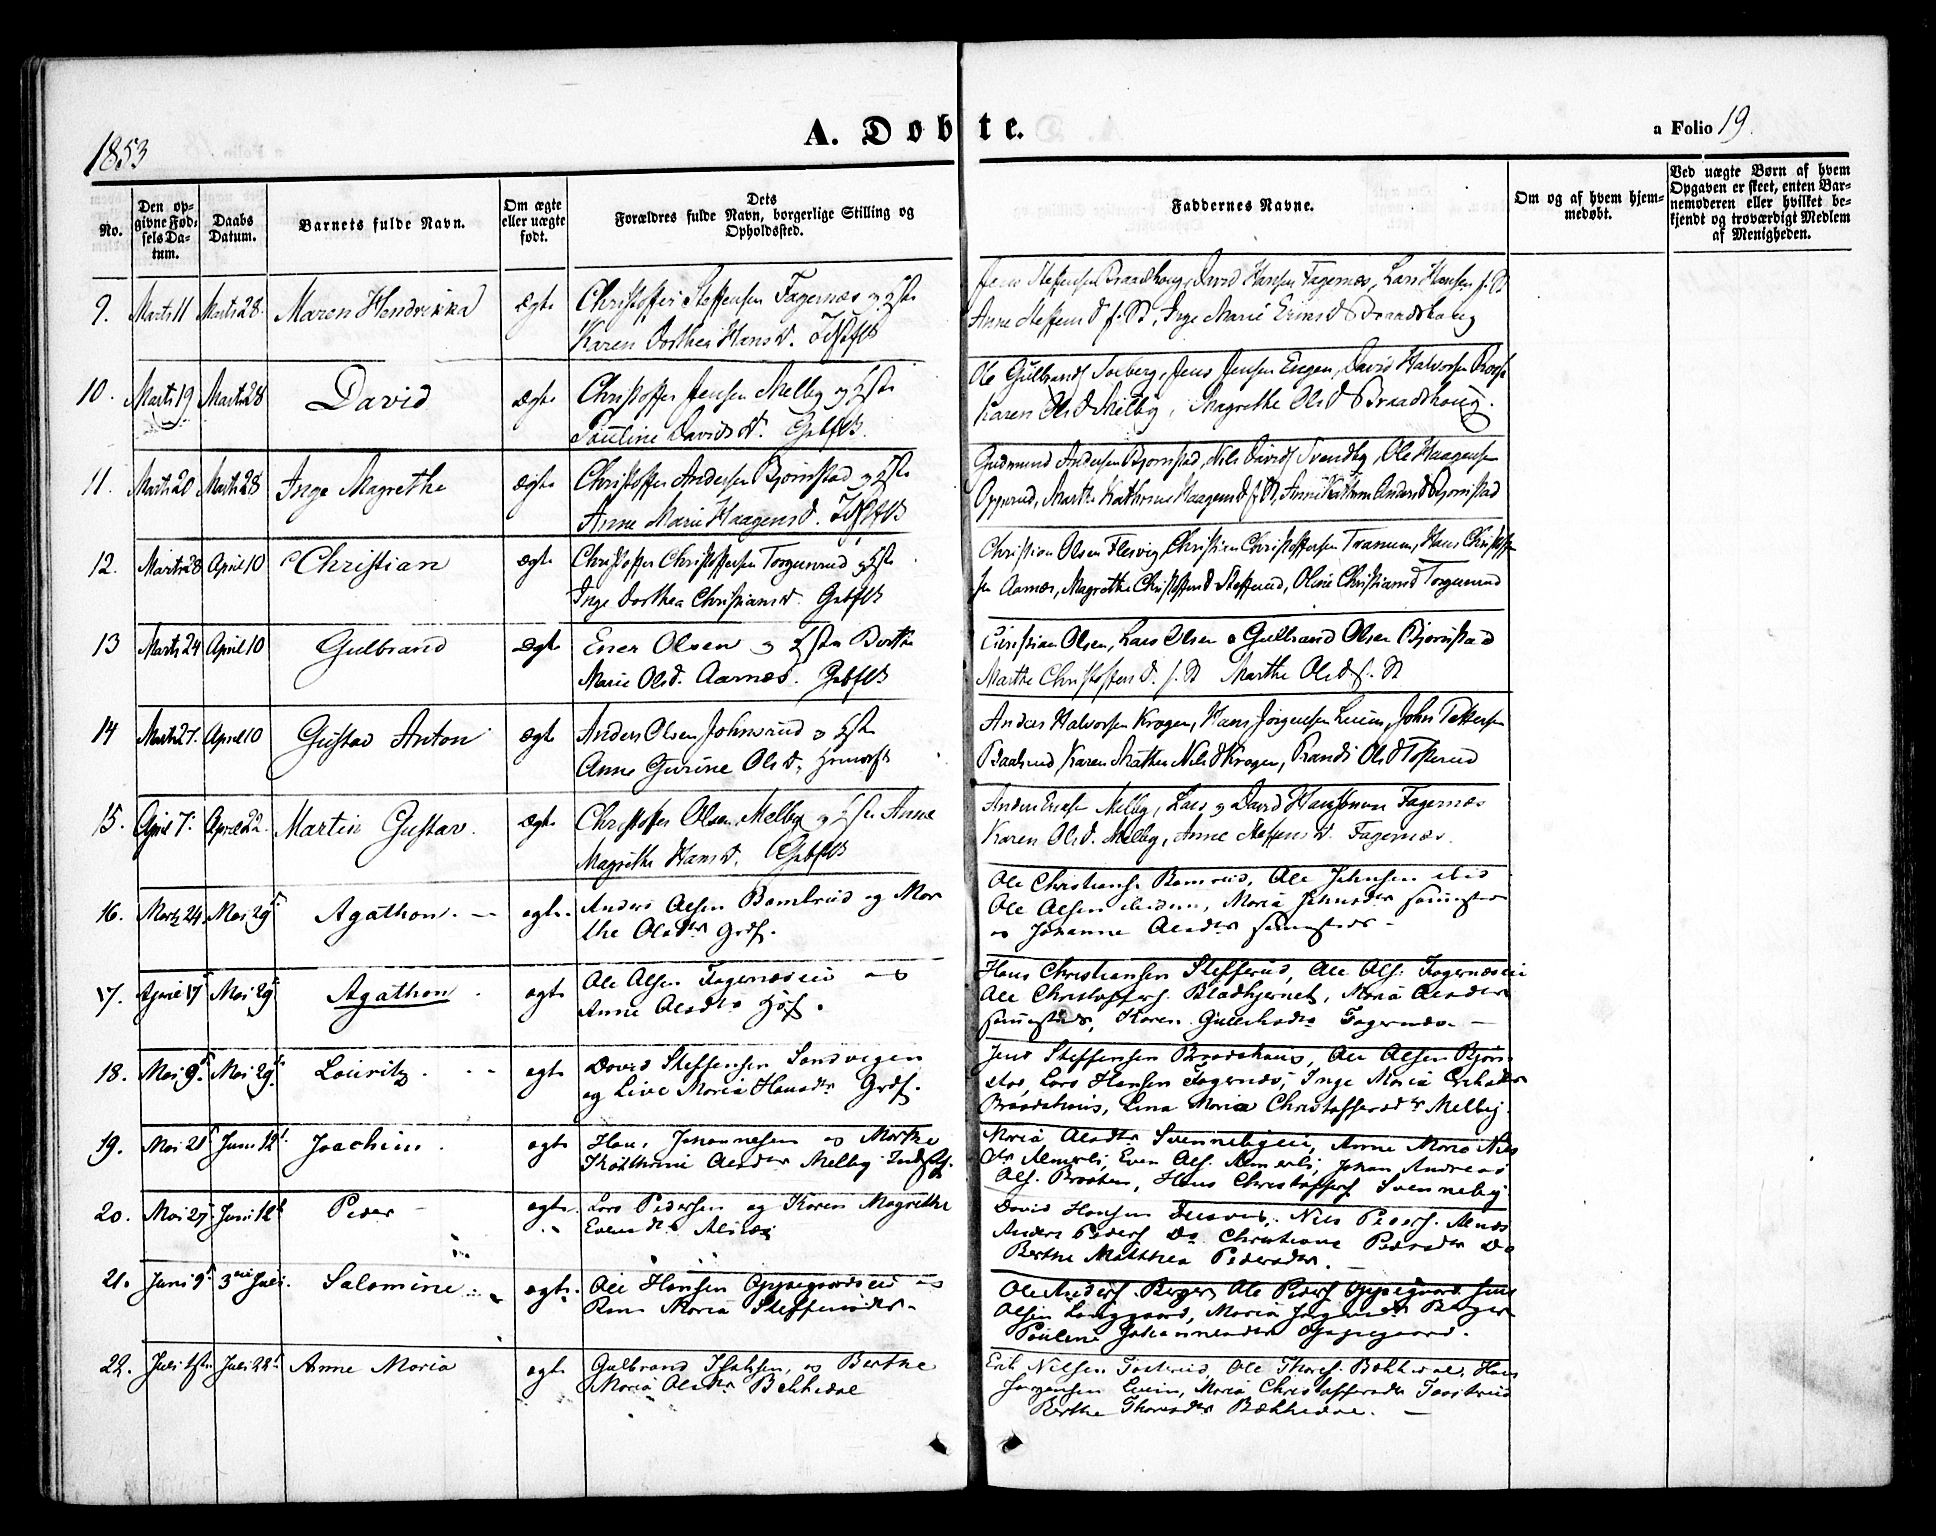 1853
A. Døbte.
a Folio 19.
No.
Den opgivne Fødselsdatum.
Daabs Datum.
Barnets fulde Navn.
Om ægte eller uægte født.
Dets Forældres fulde Navn, borgerlige Stilling og Opholdssted.
Faddernes Navne.
Om og af hvem hjemmedøbt.
Ved uægte Børn af hvem Opgaven er skeet, enten Barnemoderen eller hvilket bekjendt og troværdigt Medlem af Menigheden.
9. Marts 11 Marts 28. Maren Hendrikka ægte Christoffer Steffensen Fagernæs og
Karen Dorthea Hansd.
Jens Steffensen Braadhoug, David Hansen Fagernæs, Lars Hansen
Anne Steffensd Inge Marie Ericsd Braadhoug
10. Marts 19 Marts 28 David ægte Christoffer Jensen Melby og
Pauline Davidsd.
Ole Gulbrands Soeberg, Jens Jensen David Halvorsen
Karen Olsd Melby, Magrethe Olsd Braadhoug.
11. Marts 20 Marts 28 Inge Magrethe ægte Christoffer Andersen Bjørnstad og
Anne Marie Haagensd.
Gudmund Andersen Bjørnstad, Nils Davids Svendby, Ole Haagensen
Opperud, Marthe Kathrine Haagensd Anne Kathrine Andersd Bjørnstad
12. Marts 28 April 10 Christian ægte Christoffer Christoffersen Torgunrud og
Inge Dorthea Christiansd.
Christian Olsen Flesvig, Christian Christoffersen Tranum, Hans Christoffer
sen Aarnæs, Magrethe Christoffersd Stefferud, Oline Christiansd Torgunrud
13 Marts 24 April 10 Gulbrand ægte Ener Olsen og Berthe
Marie Olsd. Aarnæs.
Christian Olsen, Lars Olsen o Gulbrand Olsen Bjørnstad
Marthe Christoffersd. Marthe Olsd
14 Marts 27. April 10 Gustav Anton ægte Anders Olsen Johnsrud og
Anne Gurine Olsd.
Anders Halvorsen Krogen, Hans Jørgensen Leum, John Pettersen
Baalsrud Karen Mathea Nilsd Krogen, Randi Olsd Tosterud
15. April 7. April 22. Martin Gustav. ægte Christoffer Olsen Melby og Anne
Magrethe Hansd.
Anders Ericsen Melby, Lars og David Fagernæs
Karen Olsd. Melby, Anne Steffensd. Fagernæs.
16. Marts 24. Mai 29 Agathon. ægte. Anders Olsen Bomerud og Mar
the Olsdtr
Ole Christians Bomerud, Ole Johnsen ibid
Ole Olsen ibidem, Maria Johnsdtr
og Johanne Olsdtr
17. April 17 Mai 29 Agathon ægte Ole Olsen Fagernæseie og
Anne Olsdtr
Hans Christiansen Stefferud, Ole Ols. Fagernæseie
Ole Christoffers. Bladkjernet, Maria Olsdtr
Karen Gulbrandsdtr Fagernæs
18. Mai 9 Mai 29 Louritz. ægte David Steffensen Sandvigen
og Live Maria Hansdtr
Jens Steffensen Braadhoug, Ole Olsen Bjørn
stad, Lars Hansen Fagernæs, Inge Maria Eriksdtr
Braadhoug, Lina Maria Christoffersdtr Melby.
19. Mai 21 Juni 12 Joachim. ægte Hans Johannesen og Marthe
Kathrine Olsdtr Melby
Maria Olsdtr Svennebyeie, Anne Maria Nils
dtr Almerli, Even Ols. Almerli, Johan Andreas
Ols. Braaten, Hans Christoffers Svenneby
20. Mai 27 Juni 12 Peder ægte. Lars Pedersen og Karen Magrethe
Evensdtr
David Hansen Nils Peders. Alnæs
Anders Peders Do Christiane Pedersdtr Do
Berthe Mathea Pedersdtr.
21. Juni 9 3die Juli. Salomine ægte. Ole Hansen Oppegaardseie og
Maria Steffensdtr
Ole Anders. Berger, Ole Peders Oppegaard, Jens
Olsen Langgaard, Maria Berger
Pauline Johannesdtr Oppegaard.
22. Juli 1ste Juli 22 Anne Maria ægte Gulbrand og Berthe
Maria Olsdtr Bækkedal
Erik Nilsen Tostrud, Ole Thores. Bækkedal, Hans
Jørgensen Leum, Maria Christoffersdtr Taastrud
Berthe Thoresdtr Bækkedal.